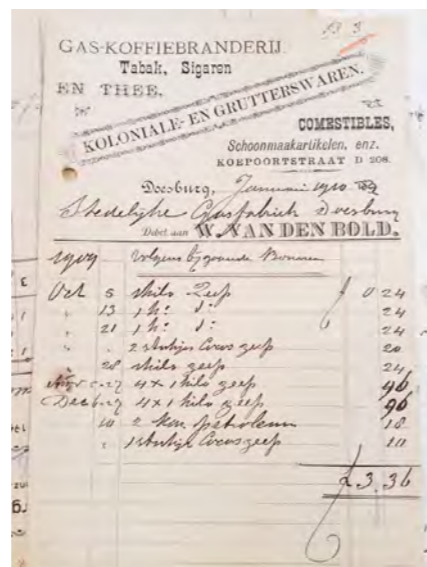 GAS-KOFFIEBRANDERIJ.
Tabak, Sigaren
EN THEE.
KOLONIALE- EN GRUTTERSWAREN.
COMESTIBLES,
Schoonmaakartikelen, enz.
KOEPOORTSTRAAT D 208.
Doesburg, Januari 1910
Stedelijke Gasfabriek Doesburg
Debet aan W. VAN DEN BOLD.
1909 Volgens bijgaande Bonnen
Oct 5 1 kilo Zeep f 0 24
" 13 1 ko do 24
" 21 1 ko do 24
" " 2 stukjes Cocos zeep 20
" 28 1 kilo zeep 24
Nov 6-27 4 x 1 kilo zeep 96
Dec 6-27 4 x 1 kilo zeep 96
" 10 2 kan petroleum 18
" 1 stukje Cocos zeep 10
£ 3,36